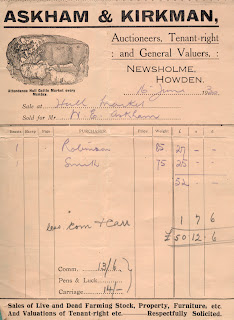 ASKHAM & KIRKMAN,
Auctioneers, Tenant-right
: and General Valuers, :
NEWSHOLME,
HOWDEN.
Attendance Hull Cattle Market every Monday
16 June
Sale at Hull Market
Sold for Mr.
PURCHASER. Price. Weight. £ s. d.
1 Robinson 85 27 - -
Smith 75 25 - -
52 - -
less com & Carr 1 7 6
£ 50 12 6
Comm. 13/6
Pens & Luck
Carriage 14/-
Sales of Live and Dead Farming Stock, Property, Furniture, etc.
And Valuations of Tenant-right etc. Respectfully Solicited.